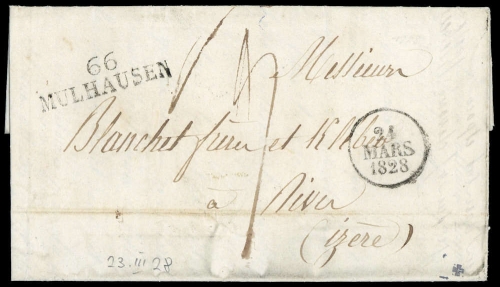 66
MULHAUSEN
Messieurs
Blanchet frères et Kléber
à Rives
(izère)
24
MARS
1828
23.III 28